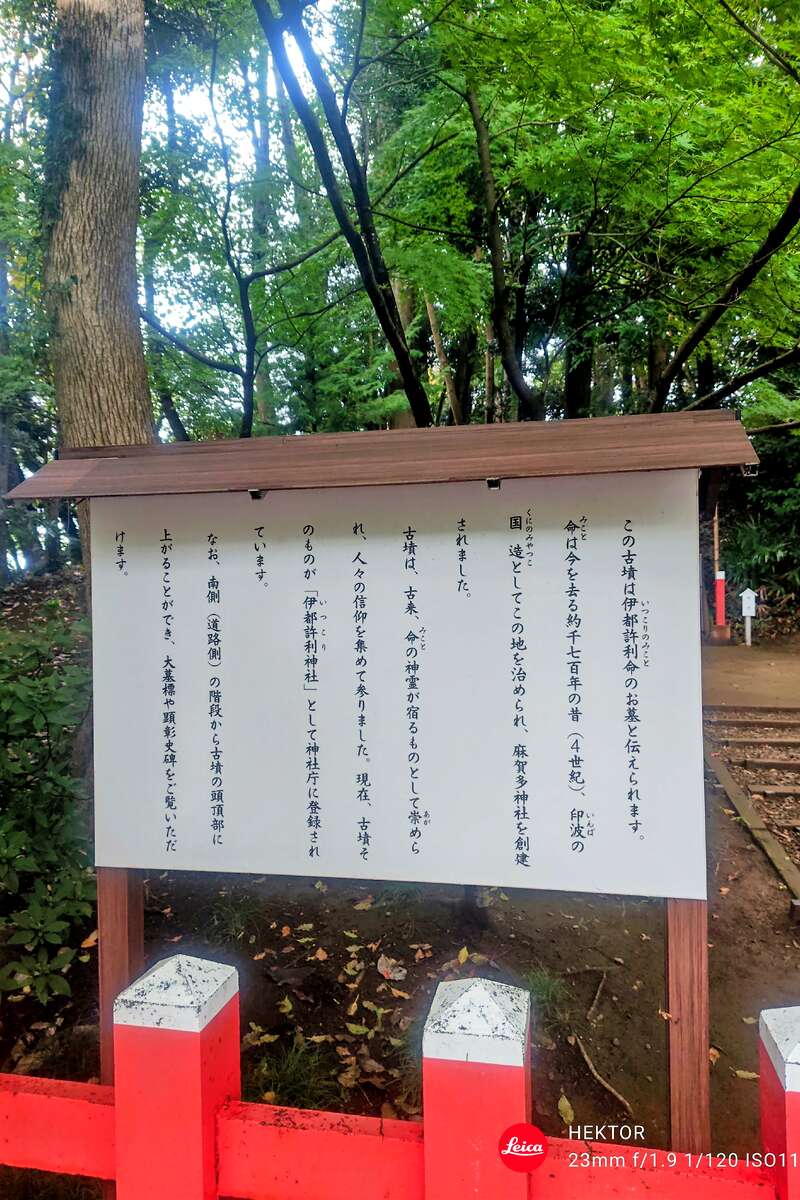 この古墳は伊都許利命のお墓と伝えられます。
いつこりのみこと
命は今を去る約千七百年の昔（4世紀）、印波の
みこと
いんば
国造としてこの地を治められ、麻賀多神社を創建
くにのみやつこ
されました。
古墳は、古来、命の神霊が宿るものとして崇めら
みこと
あが
れ、人々の信仰を集めて参りました。現在、古墳そ
のものが「伊都許利神社」として神社庁に登録され
いつこり
ています。
なお、南側（道路側）の階段から古墳の頭頂部に
上がることができ、大墓標や顕彰史碑をご覧いただ
けます。
Leica
HEKTOR
23mm f/1.9 1/120 ISO11